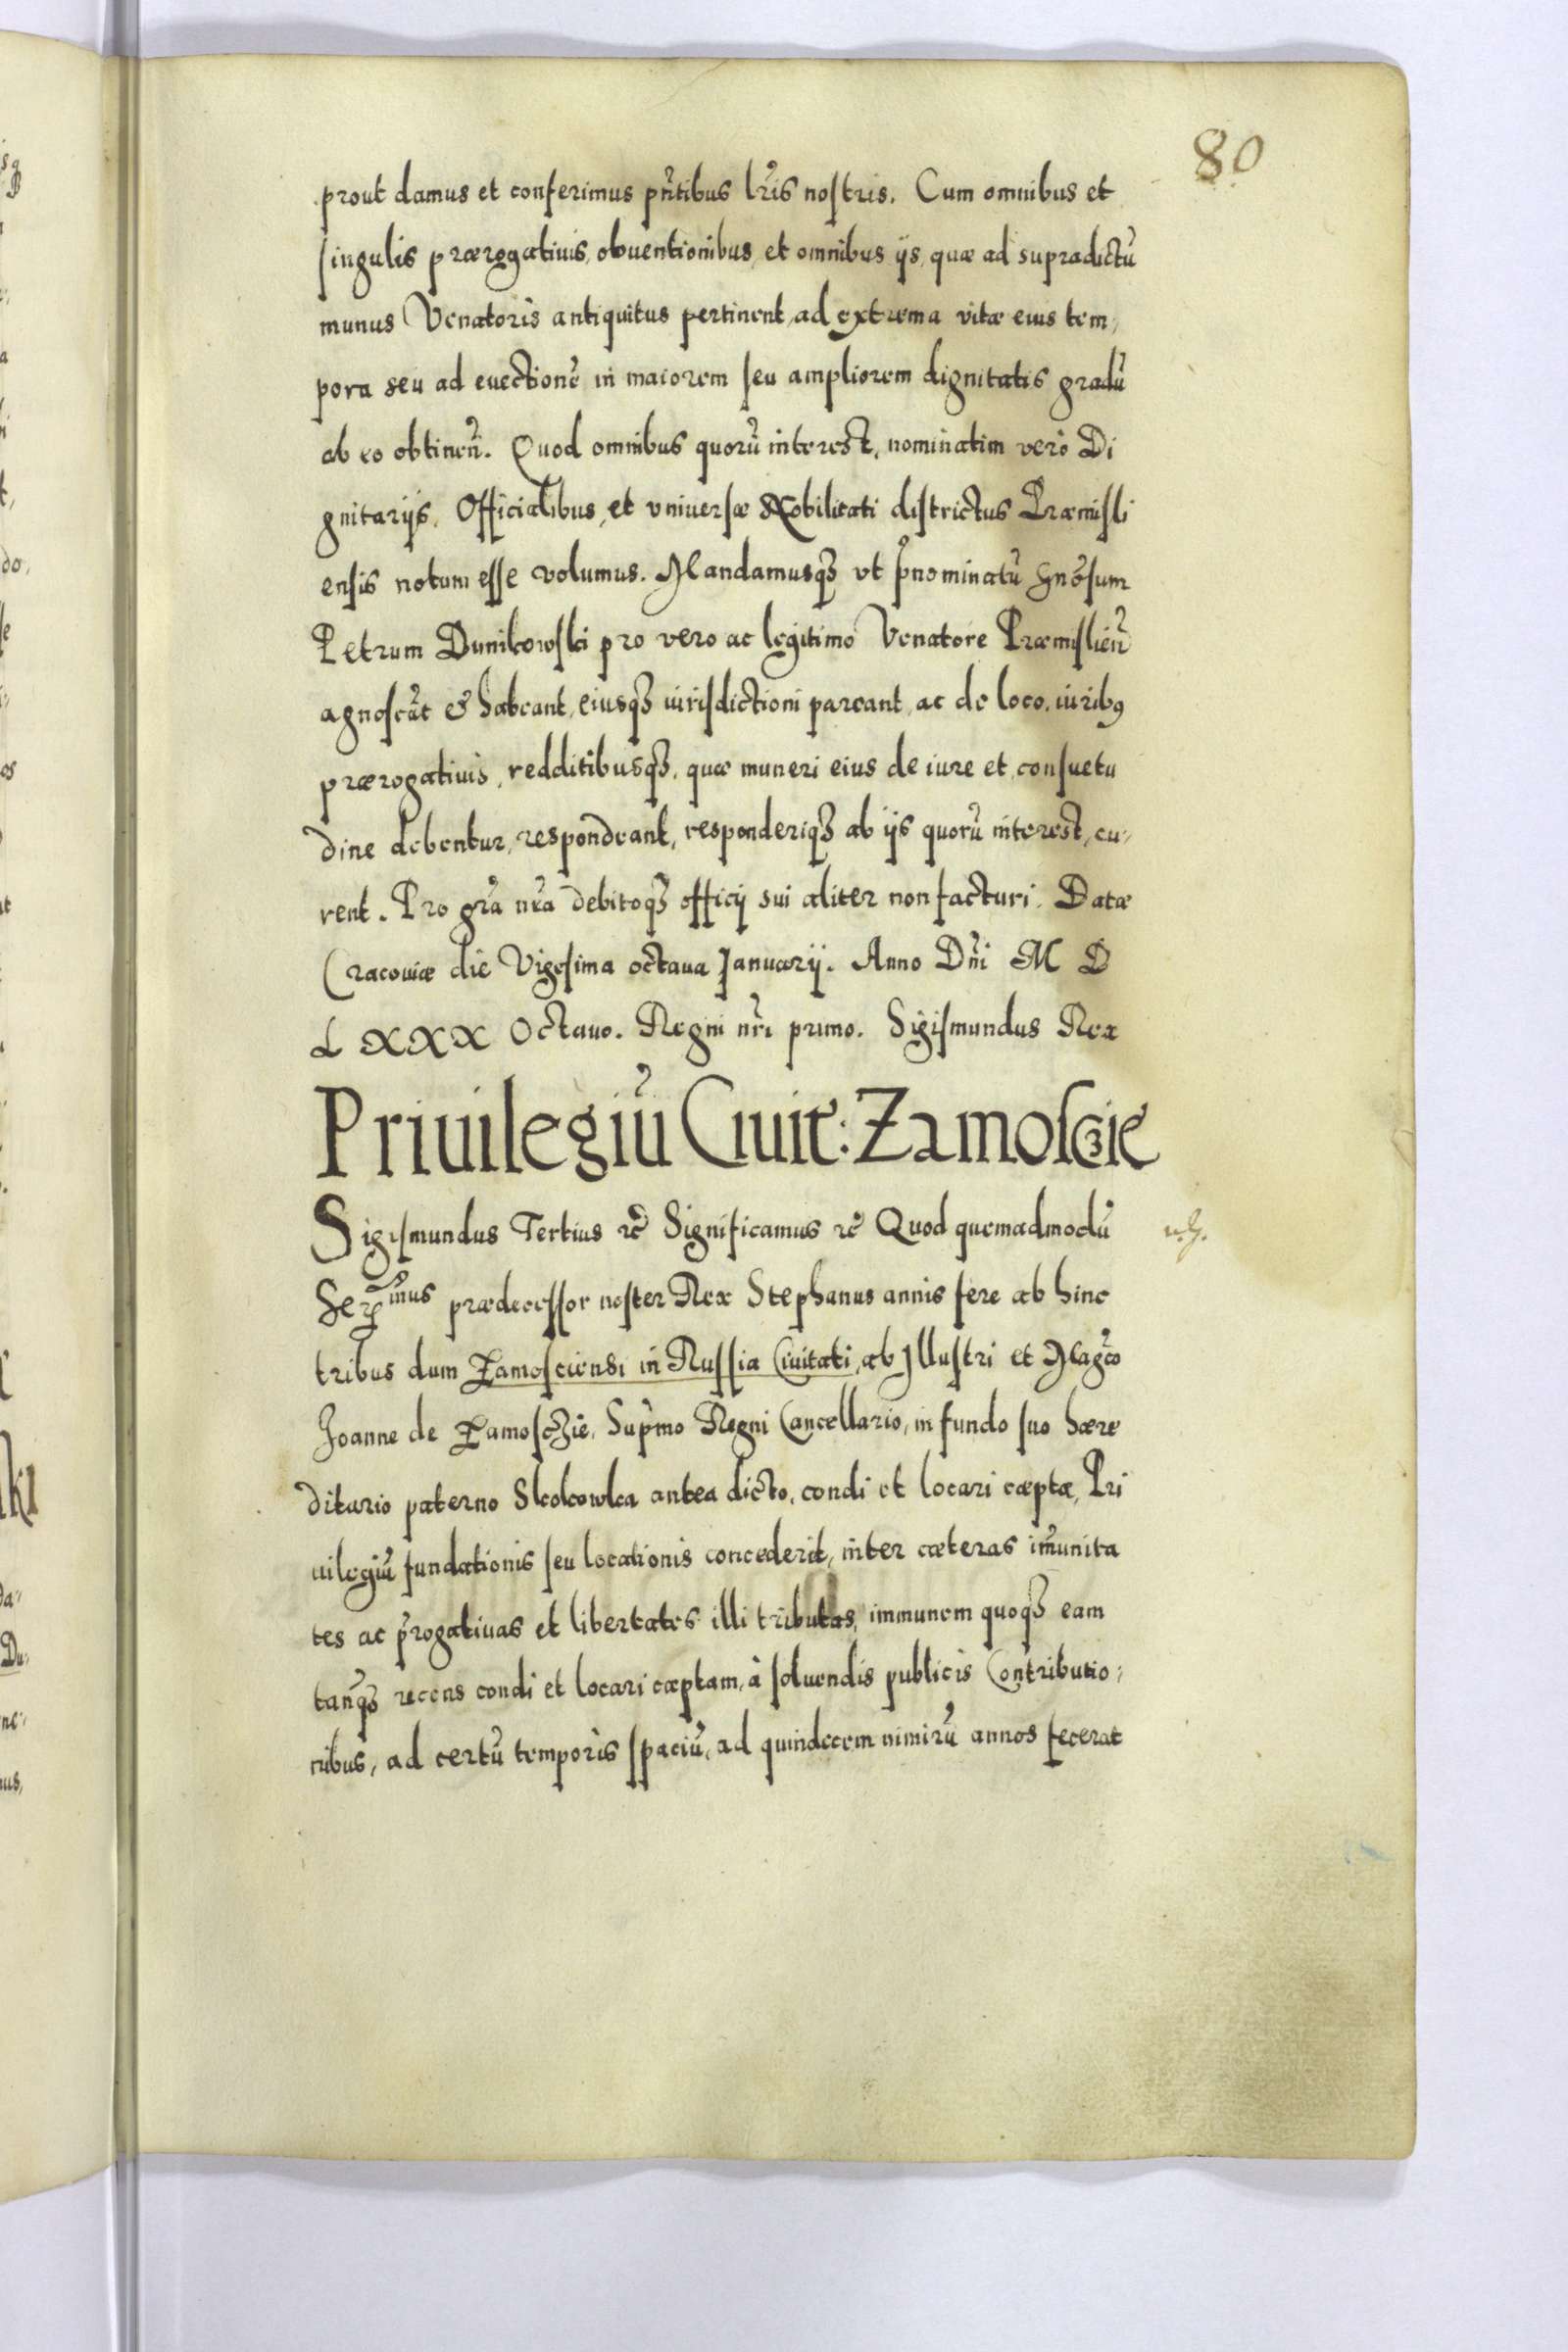 80
prout damus et conferimus pñtibus lr̃is nostris. Cum omnibus et
singulis prærogatiuis, obuentionibus, et omnibus ijs, quæ ad supradictũ
munus Venatoris antiquitus pertinent, ad extrema vitæ eius tem,
pora seu ad euectionẽ in maiorem seu ampliorem dignitatis gradũ
ab eo obtineñ. Quod omnibus quorũ interest, nominatim verò Di
gnitarijs, Officialibus, et vniuersæ Nobilitati districtus Præmisli
ensis notum esse volumus. Mandamusqз vt p̃nominatũ Gnõsum
Petrum Dunikowski pro vero ac legitimo Venatore Præmislieñ
agnoscãt & habeant, eiusqз iurisdictioni pareant, ac de loco, iuribꝰ
prærogatiuis, redditibusqз, quæ muneri eius de iure et consuetu
dine debentur, respondeant, responderiqз ab ijs quorũ interest, cu,
rent. Pro gr̃a nr̃a debitoqз officij sui aliter non facturi. Datæ
Cracouiæ die Vigesima octaua Januarij. Anno Dñi M D
L XXX Octauo. Regni nr̃i primo. Sigismundus Rex
Priuilegiũ Ciuit: Zamosczie
Sigismundus Tertius etc̃ Significamus etc̃ Quod quemadmodũ
Serm̃us prædecessor noster Rex Stephanus annis fere ab hinc
tribus dum Zamosciensi in Russia Ciuitati, ab Illustri et Magc̃o
Joanne de Zamosczie, Supr̃mo Regni Cancellario, in fundo suo hære
ditario paterno Skokowka antea dicto, condi et locari cæptæ, Pri
uilegiũ fundationis seu locationis concederit, inter cæteras im̃unita
tes ac p̃rogatiuas et libertates illi tributas, immunem quoqз eam
tanq̃з recens condi et locari cæptam, à soluendis publicis Contributio,
nibus, ad certũ temporis spaciũ, ad quindecem nimirũ annos fecerat